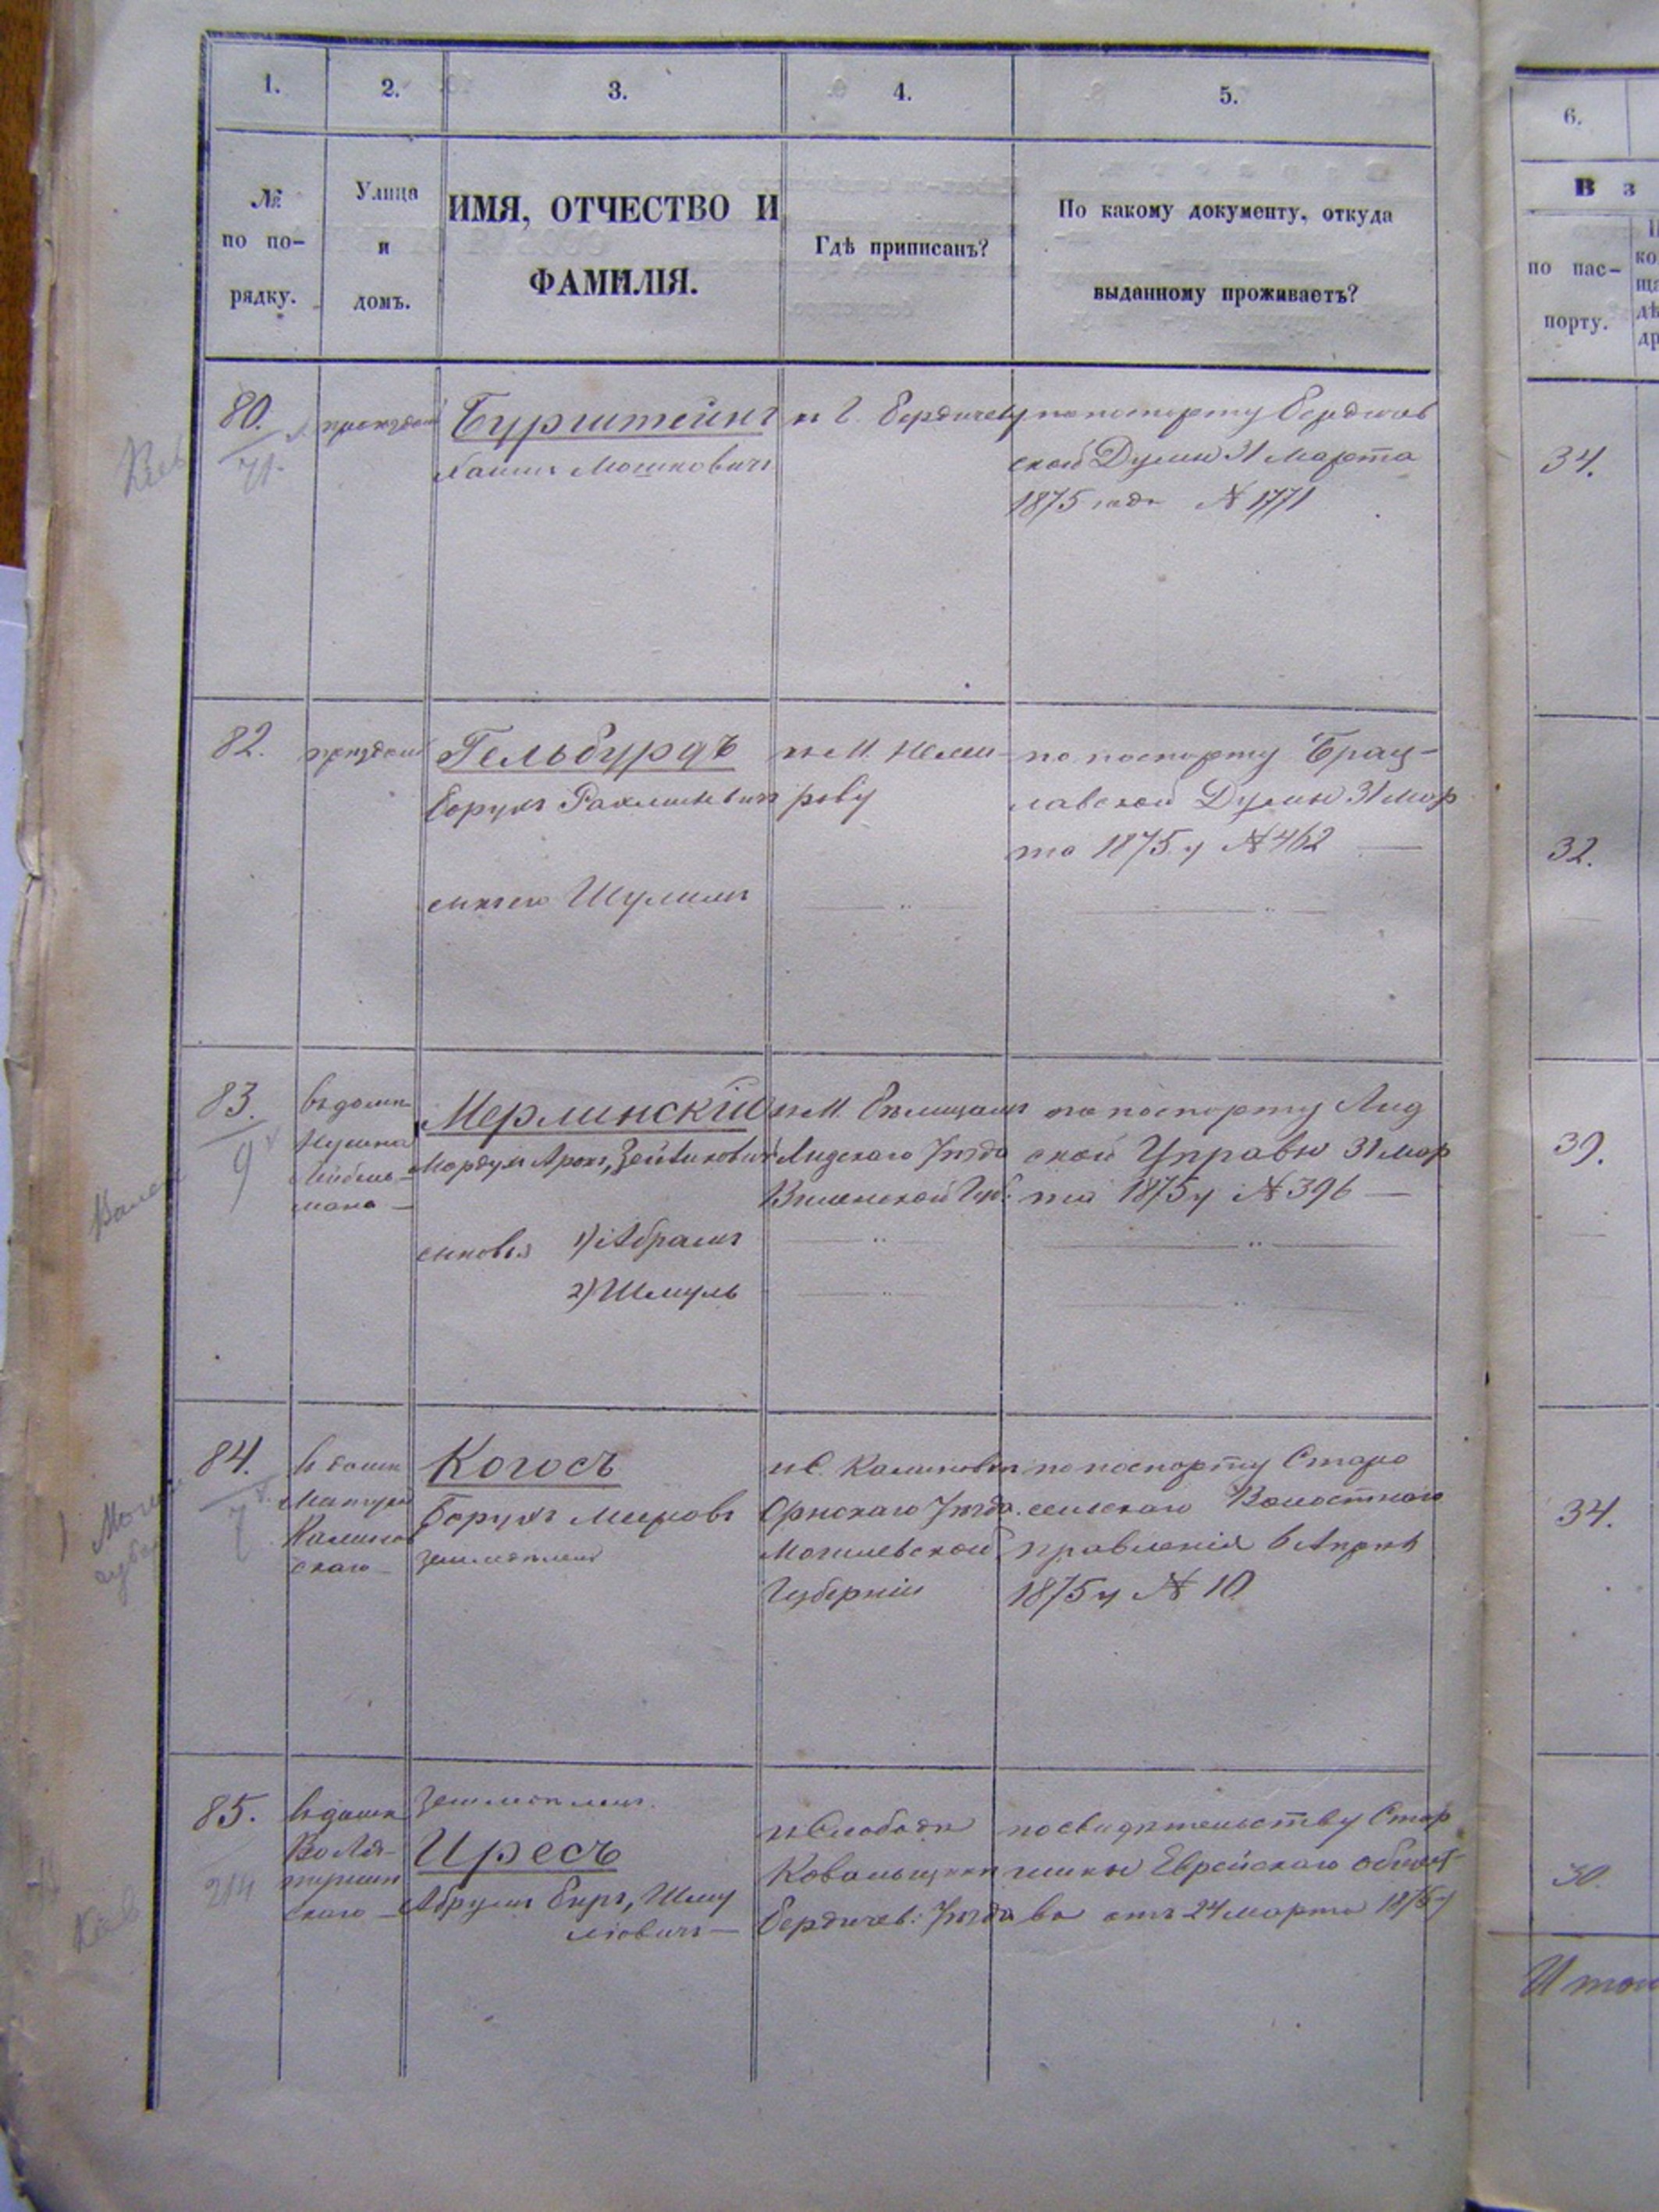 1.
2.
3.
4.
5.
6.
№
по по-
рядку.
Улица
и
домъ.
ИМЯ, ОТЧЕСТВО И
ФАМИЛІЯ.
Гдѣ приписанъ?
По какому документу, откуда
выданному проживаетъ?
В з
по пас-
порту.
80.
71.
проездомъ
Бурштейнъ
Хаимъ Мошковичъ
къ г. Бердичеву
по паспорту Бердичев
ской Думы 31 Марта
1875 года № 1771
34.
82.
проездомъ
Гельбурдъ
Борухъ Рахмилевичъ
сынъ его Шулимъ
къ М. Неми-
рову
по паспорту Брац-
лавской Думы 31 Мар
та 1875 г № 462
32.
83.
9
въ домѣ
Мерлинскій
Мордухъ Аронъ, Зейликовичъ
сыновья 1) Абрамъ
2) Шмуль
къ М. Бѣлицамъ
Лидскаго Уѣзда
Виленской Губ.
по паспорту Лид
ской Управы 31 Мар
та 1875 г № 396
39.
84.
7
в домѣ
Калинов
скаго
Когосъ
Борухъ Мееровъ
земледѣлецъ
Оршскаго Уѣзда
Могилевской
Губерніи
по паспорту Старо
сельскаго Волостнаго
Правленія 6 Апрѣля
1875 г № 10
34.
85.
214
в домѣ
скаго
Земледѣлецъ
Иресъ
Абрумъ Беръ, Шму
левичъ
къ Слободѣ
Бердичев: Уѣзда
по свидѣтельству Стар
шины Еврейскаго общест-
ва отъ 24 Марта 1875 г
30.
Итого